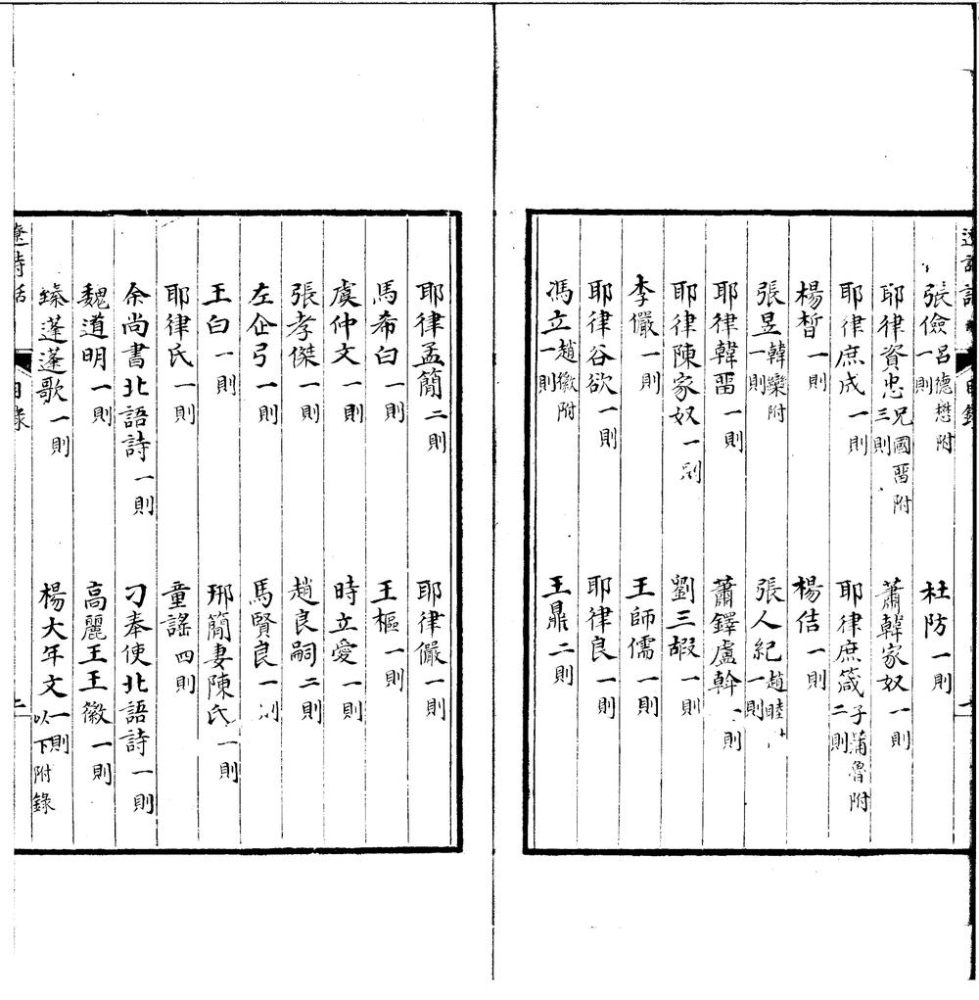 張儉 呂德懋附 一則 杜防 一則
耶律資忠 兄國畱附 三則 蕭韓家奴 一則
耶律庶成 一則 耶律庶箴 子蒲魯附 二則
楊晳 一則 楊佶 一則
張昱 韓欒附 一則 張人紀 趙睦 一則
耶律韓畱 一則 蕭鐸盧幹 一則
耶律陳家奴 一則 劉三嘏 一則
李儼 一則 王師儒 一則
耶律谷欲 一則 耶律良 一則
馮立 趙徽附 一則 王鼎 二則
耶律孟簡 二則 耶律儼 一則
馬希白 一則 王樞 一則
虞仲文 一則 時立愛 一則
張孝傑 一則 趙良嗣 二則
左企弓 一則 馬賢良 一則
王白 一則 邢簡妻陳氏 一則
耶律氏 一則 童謠 四則
余尚書北語詩 一則 刁奉使北語詩 一則
魏道明 一則 高麗王王徽 一則
臻蓬蓬歌 一則 楊大年文 一則 以下附錄
遼詩話 目錄 二